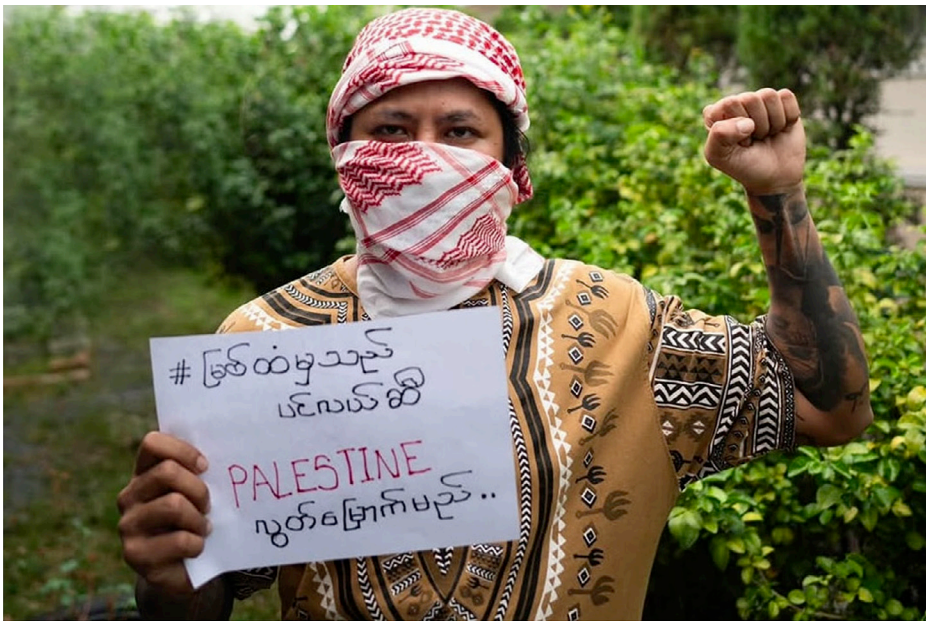 # မြစ်ထံမှသည်
ပင်လယ်ဆီ
PALESTINE
လွတ်မြောက်မည်..